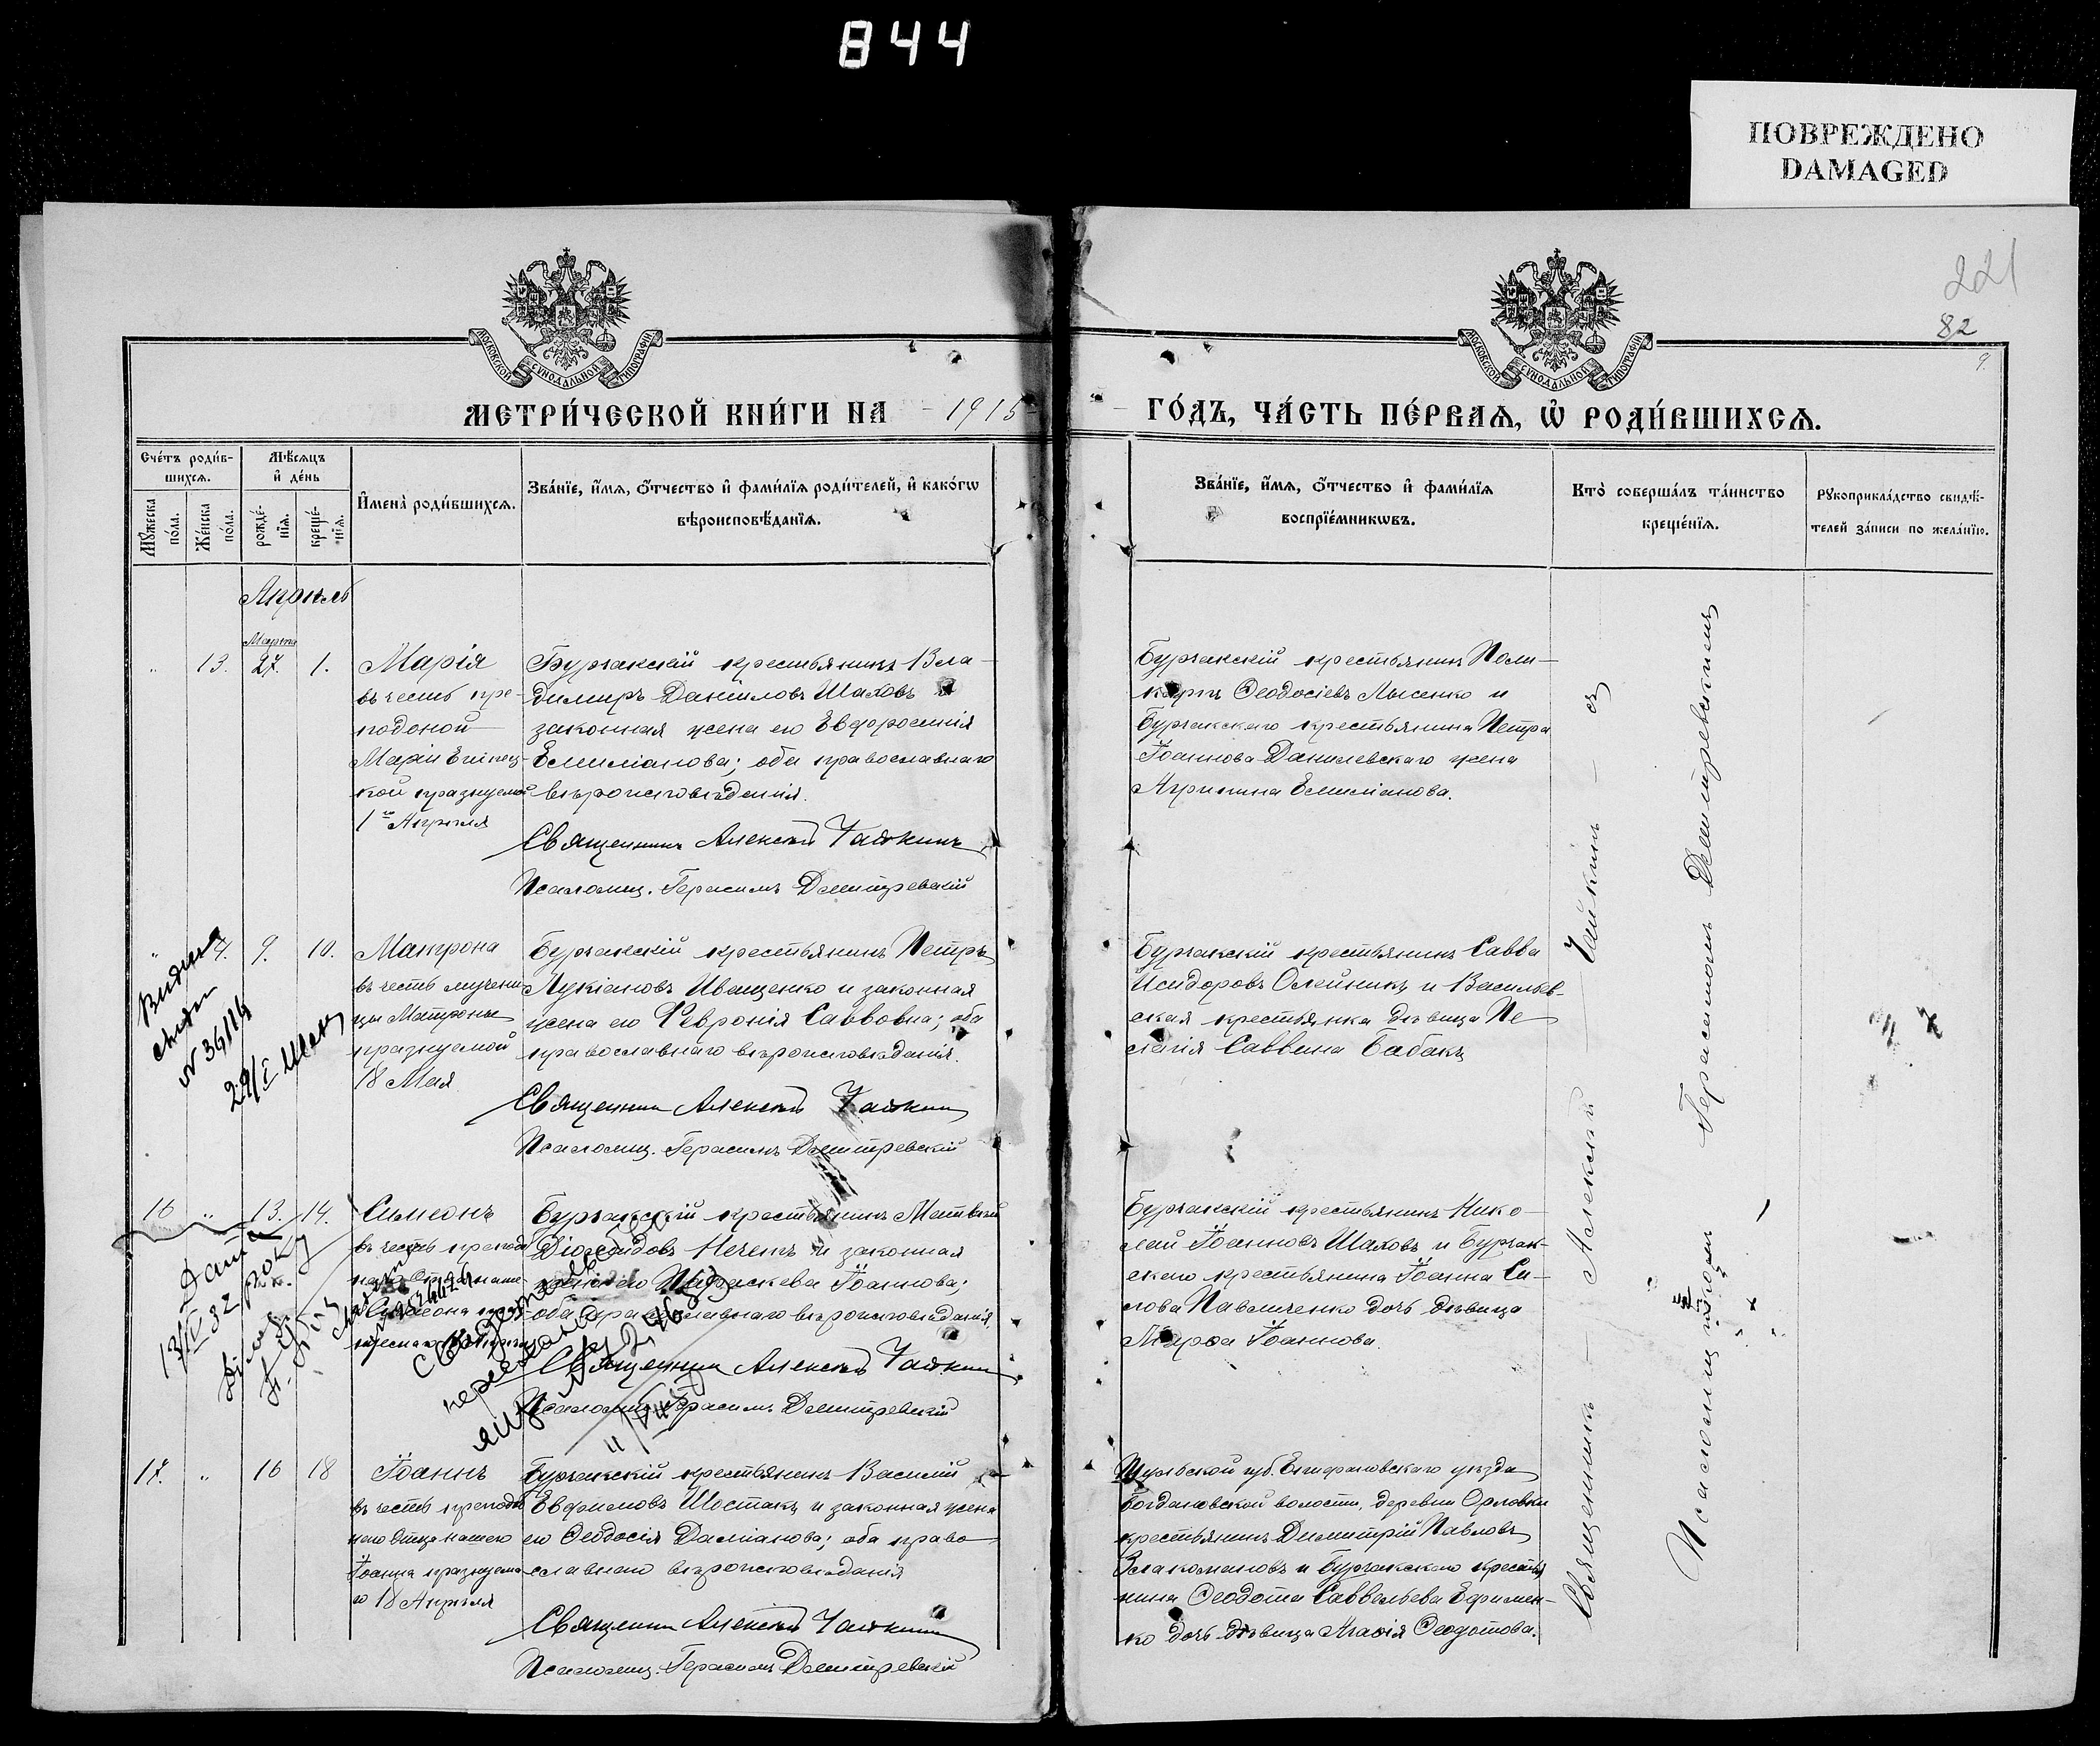 844
ПОВРЕЖДЕНО
DAMAGED
221
82
9.
МОСКОВСКОЙ СѴНОДАЛЬНОЙ ТИПОГРАФІИ
МОСКОВСКОЙ СѴНОДАЛЬНОЙ ТИПОГРАФІИ
МЕТРИ́ЧЕСКОЙ КНИ́ГИ НА - 1915 -
ГО́ДЪ, ЧА́СТЬ ПЕ́РВАѦ, Ѡ҆ РОДИ́ВШИХСѦ.
Сче́тъ роди́в-
шихсѧ.
Мꙋ́жеска
по́ла.
Же́нска
по́ла.
Мѣ́сѧцъ
и҆ де́нь
рожде́-
нїѧ.
креще́-
нїѧ.
И҆мена̀ роди́вшихсѧ.
Зва́нїе, и҆́мѧ, ѻ҆́тчество и҆ фами́лїѧ роди́телей, и҆ како́гѡ
вѣроисповѣ́данїѧ.
Зва́нїе, и҆́мѧ, ѻ҆́тчество и҆ фами́лїѧ
воспрїе́мникѡвъ.
Кто̀ соверша́лъ та́инство
креще́нїѧ.
Рꙋкоприкла́дство свидѣ́-
телей за́писи по жела́нїю.
Апрѣль
Марта
" 13. 27. 1.
Марія
въ честь пре-
подоной
Маріи Египец-
кой празнуемой
1го Апрѣля
Бурчакскій крестьянинъ Вла-
димиръ Даніиловъ Шаховъ и
законная жена его Евфросинія
Емиліанова; оба православнаго
вѣроисповѣданія.
Священникъ Алексѣй Чайкинъ
Псаломщ. Герасимъ Дмитревскій
Бурчакскій крестьянинъ Поли-
карпъ Ѳеодосіевъ Лысенко и
Бурчакскаго крестьянина Петра
Іоаннова Данилевскаго жена
Агрипина Емиліанова.
" 9. 10.
Матрона
въ честь мучени-
цы Матроны
празнуемой
18 Мая
Бурчакскій крестьянинъ Петръ
Лукіановъ Иващенко и законная
жена его Февронія Саввовна; оба
православнаго вѣроисповѣданія.
Священникъ Алексѣй Чайкинъ
Псаломщ. Герасимъ Дмитревскій
Бурчакскій крестьянинъ Савва
Исидоровъ Олейникъ и Васильев-
ская крестьянка дѣвица Пе-
лагія Саввина Бабакъ
16 " 13. 14.
Симеонъ
въ честь препод
Бурчакскій крестьянинъ Матвѣй
Діомидовъ Неченъ и законная
жена его Параскева Іоаннова;
оба православнаго вѣроисповѣданія.
Священникъ Алексѣй Чайкинъ
Псаломщ. Герасимъ Дмитревскій
Бурчакскій крестьянинъ Нико-
лай Іоанновъ Шаховъ и Бурчак-
скаго крестьянина Іоанна Си-
лова Павличенко дочь дѣвица
Марѳа Іоаннова.
17. " 16 18
Іоаннъ
въ честь преподоб
наго Отца нашего
Іоанна празнуема-
го 18 Апрѣля
Бурчакскій крестьянинъ Василій
Евфимовъ Шостакъ и законная жена
его Ѳеодосія Даміанова; оба право-
славнаго вѣроисповѣданія
Священникъ Алексѣй Чайкинъ
Псаломщ. Герасимъ Дмитревскій
Тульской губ. Епифановскаго уѣзда
Богдановской волости, деревни Орловки
крестьянинъ Димитрій Павловъ
и Бурчакскаго крестья
нина Ѳеодота Саввельева Ефимен-
ко дочь дѣвица Агаѳія Ѳеодотова.
Священникъ — Алексѣй Чайкинъ
Псаломщикомъ Герасимомъ Дмитревскимъ